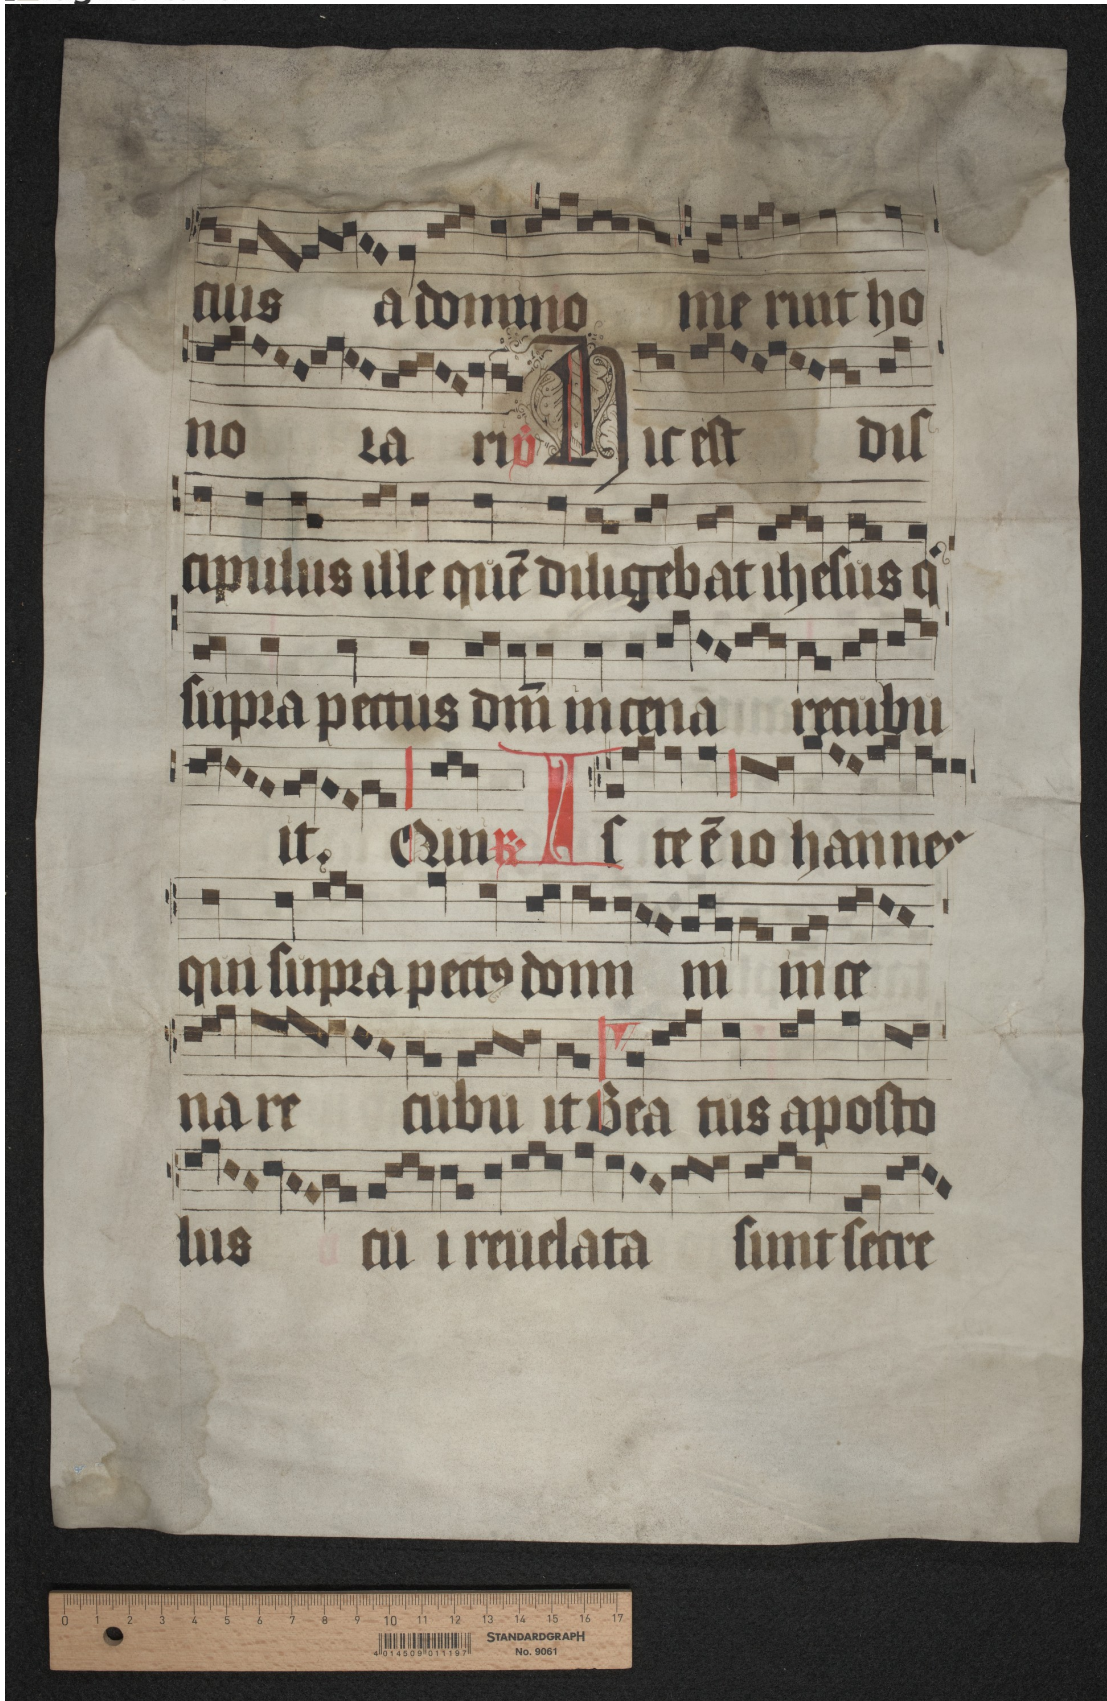 cius a domino me ruit ho
no ra ri ℣ Hic est dis
cipulus ille quē diligebat ihesus q
supra pectus dnī in cena recubu
it. Qui ℟ Is te ē io hannes
qui supra pectꝰ domi ni in ce
na re cubu it Bea tus aposto
lus cu i reuelata sunt secre
0 1 2 3 4 5 6 7 8 9 10 11 12 13 14 15 16 17
STANDARDGRAPH
4 014509 011197
No. 9061